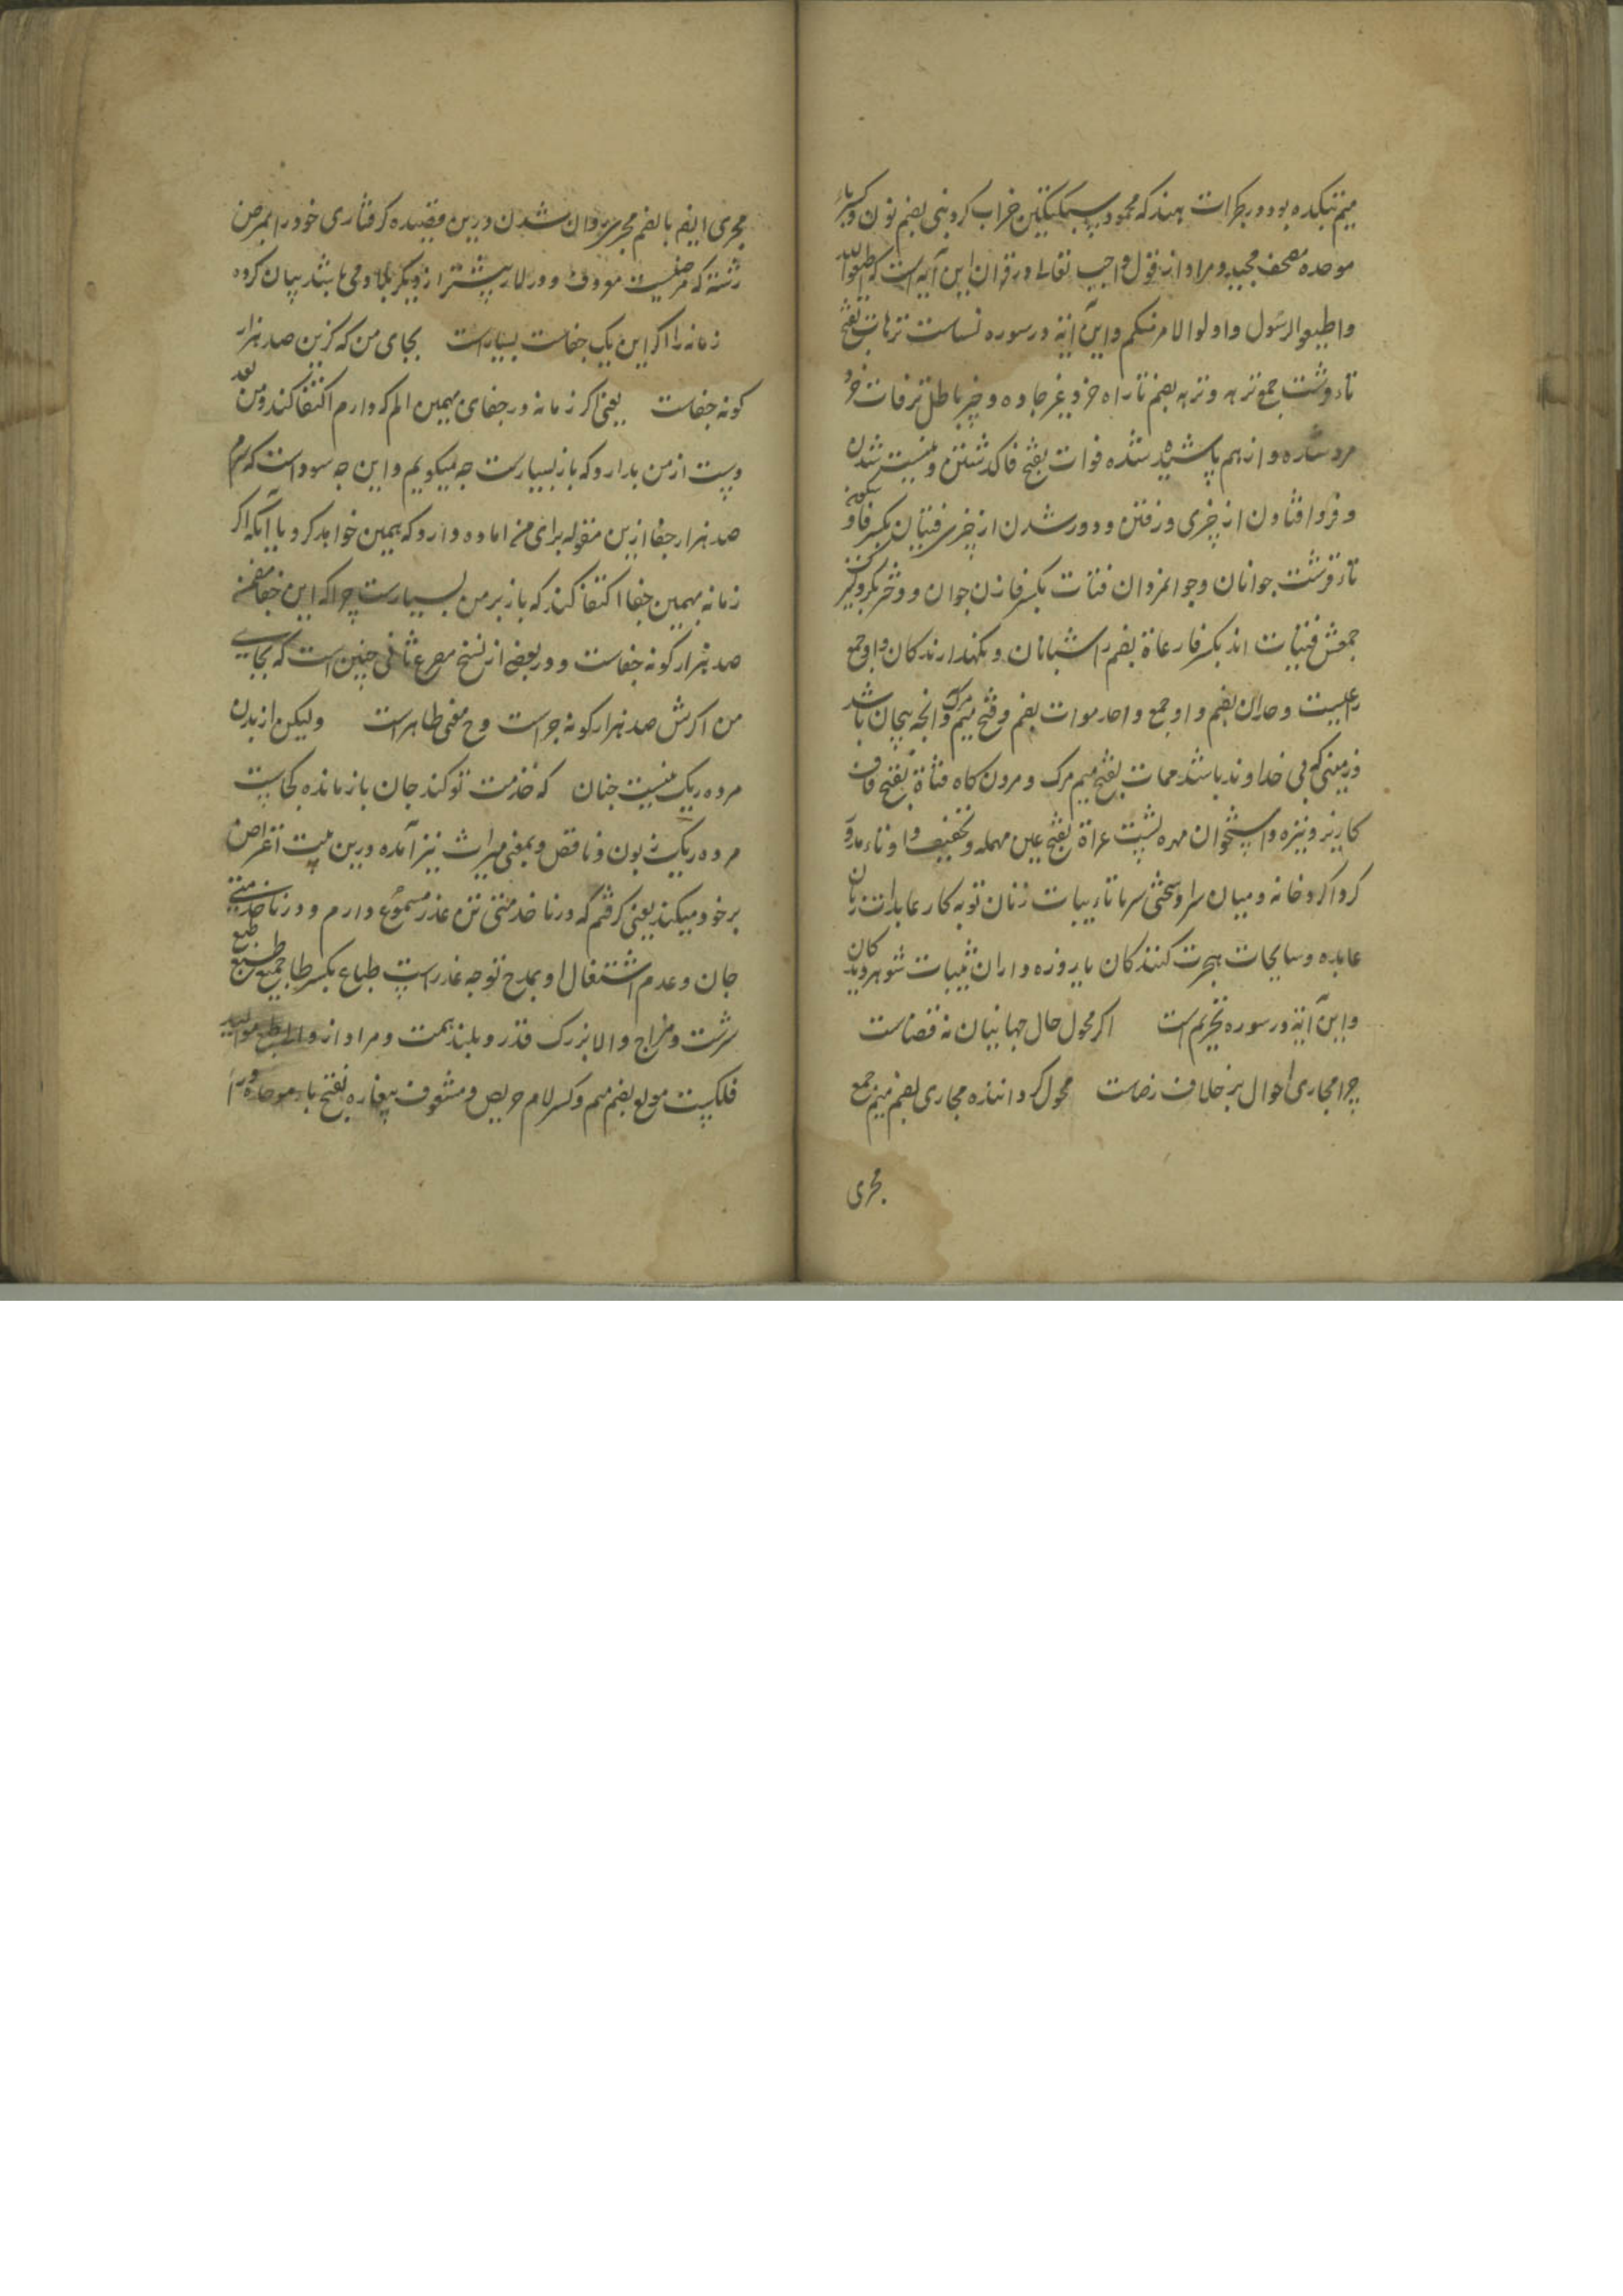 میم بتکده بود در کجرات هند که محمود سبکتکین خراب کرد نبی بضم نون و کسر باء
موحده مصحف مجید و مراد از قول واجب تعالی در قران این آیه است که اطیعوا الله
واطیعوا الرسول واولوا الامر منکم و این آیة در سوره نساست ترهات بفتح
تاء قرشت جمع ترهه و ترهه بضم تا راه خرد غیر جاده و چیز باطل رفات خرد
مرد شده و از هم پاشیده شده فوات بفتح فا کذشتن و نیست شدن
و فرو افتادن از چیزی و رفتن و دور شدن از چیزی فتیان بکسر فا و سکون
تاء قرشت جوانان و جوانمردان فتات بکسر فا زن جوان و دختر بکر و کنیزک
جمعش فتیات اند بکسر فا رعاة بضم را شبانان و نکهدارندکان و او جمع
راعیست وحدان بضم واو جمع واحد موات بضم و فتح میم مرک و انچه بیجان باشد
و زمینی که بی خداوند باشد ممات بفتح میم مرک و مردن کاه قناة بفتح قاف
کاریز و نیزه و استخوان مهره پشت عراة بفتح عین مهمله و تخفیف را و تاء مدور
کرداکرد خانه و میان سرا و سختی سرما تایبات زنان توبه کار عابدات زنان
عابده و سایحات هجرت کنندکان یا روزه داران ثیبات شوهر دیدکان
و این آیة در سوره تحریم است اکر محول حال جهانیان نه قضاست
چرا مجاری احوال بر خلاف رضاست محول کرداننده مجاری بضم میم جمع
مجری
مجری ایضا بالضم مجری روان شدن درین قصیده کرفتاری خود را بمرض
رشته که مرضیست معروف و در لار بیشتر از دیکر بلاد می باشد بیان کرده
زمانه را اکر این یک جفاست بسیارست بجای من که کزین صد هزار
کونه جفاست یعنی اکر زمانه در جفای همین الم که دارم اکتفا کند و من بعد
دست از من بدارد که باز بسیارست چه میکویم و این چه سوداست که
صد هزار جفا ازین مقوله برای من اماده دارد که همین خواهد کرد یا آنکه اکر
زمانه بهمین جفا اکتفا کند که باز بر من بسیارست چرا که این جفا متضمن
صد هزار کونه جفاست و در بعضی از نسخ مصرع ثانی چنین است که بجای
من اکرش صد هزار کونه جراست و ح معنی ظاهرست ولیکن از بدن
مرده ریک نیست چنان که خدمت تو کند جان بازمانده کجاست
مرده ریک زبون و ناقص و بمعنی میراث نیز آمده درین بیت اعتراض
بر خود میکند یعنی کرفتم که در ناخدمتی تن عذر مسموع دارم و در ناخدمتی
جان و عدم اشتغال او بمدح تو چه عذر است طباع بکسر طا جمع طبع
سرشت و مزاج والا بزرک قدر و بلند همت و مراد از والا طبع موالید
فلکیست مولع بضم میم و کسر لام حریص و مشعوف پیغاره بفتح باء موحده و را